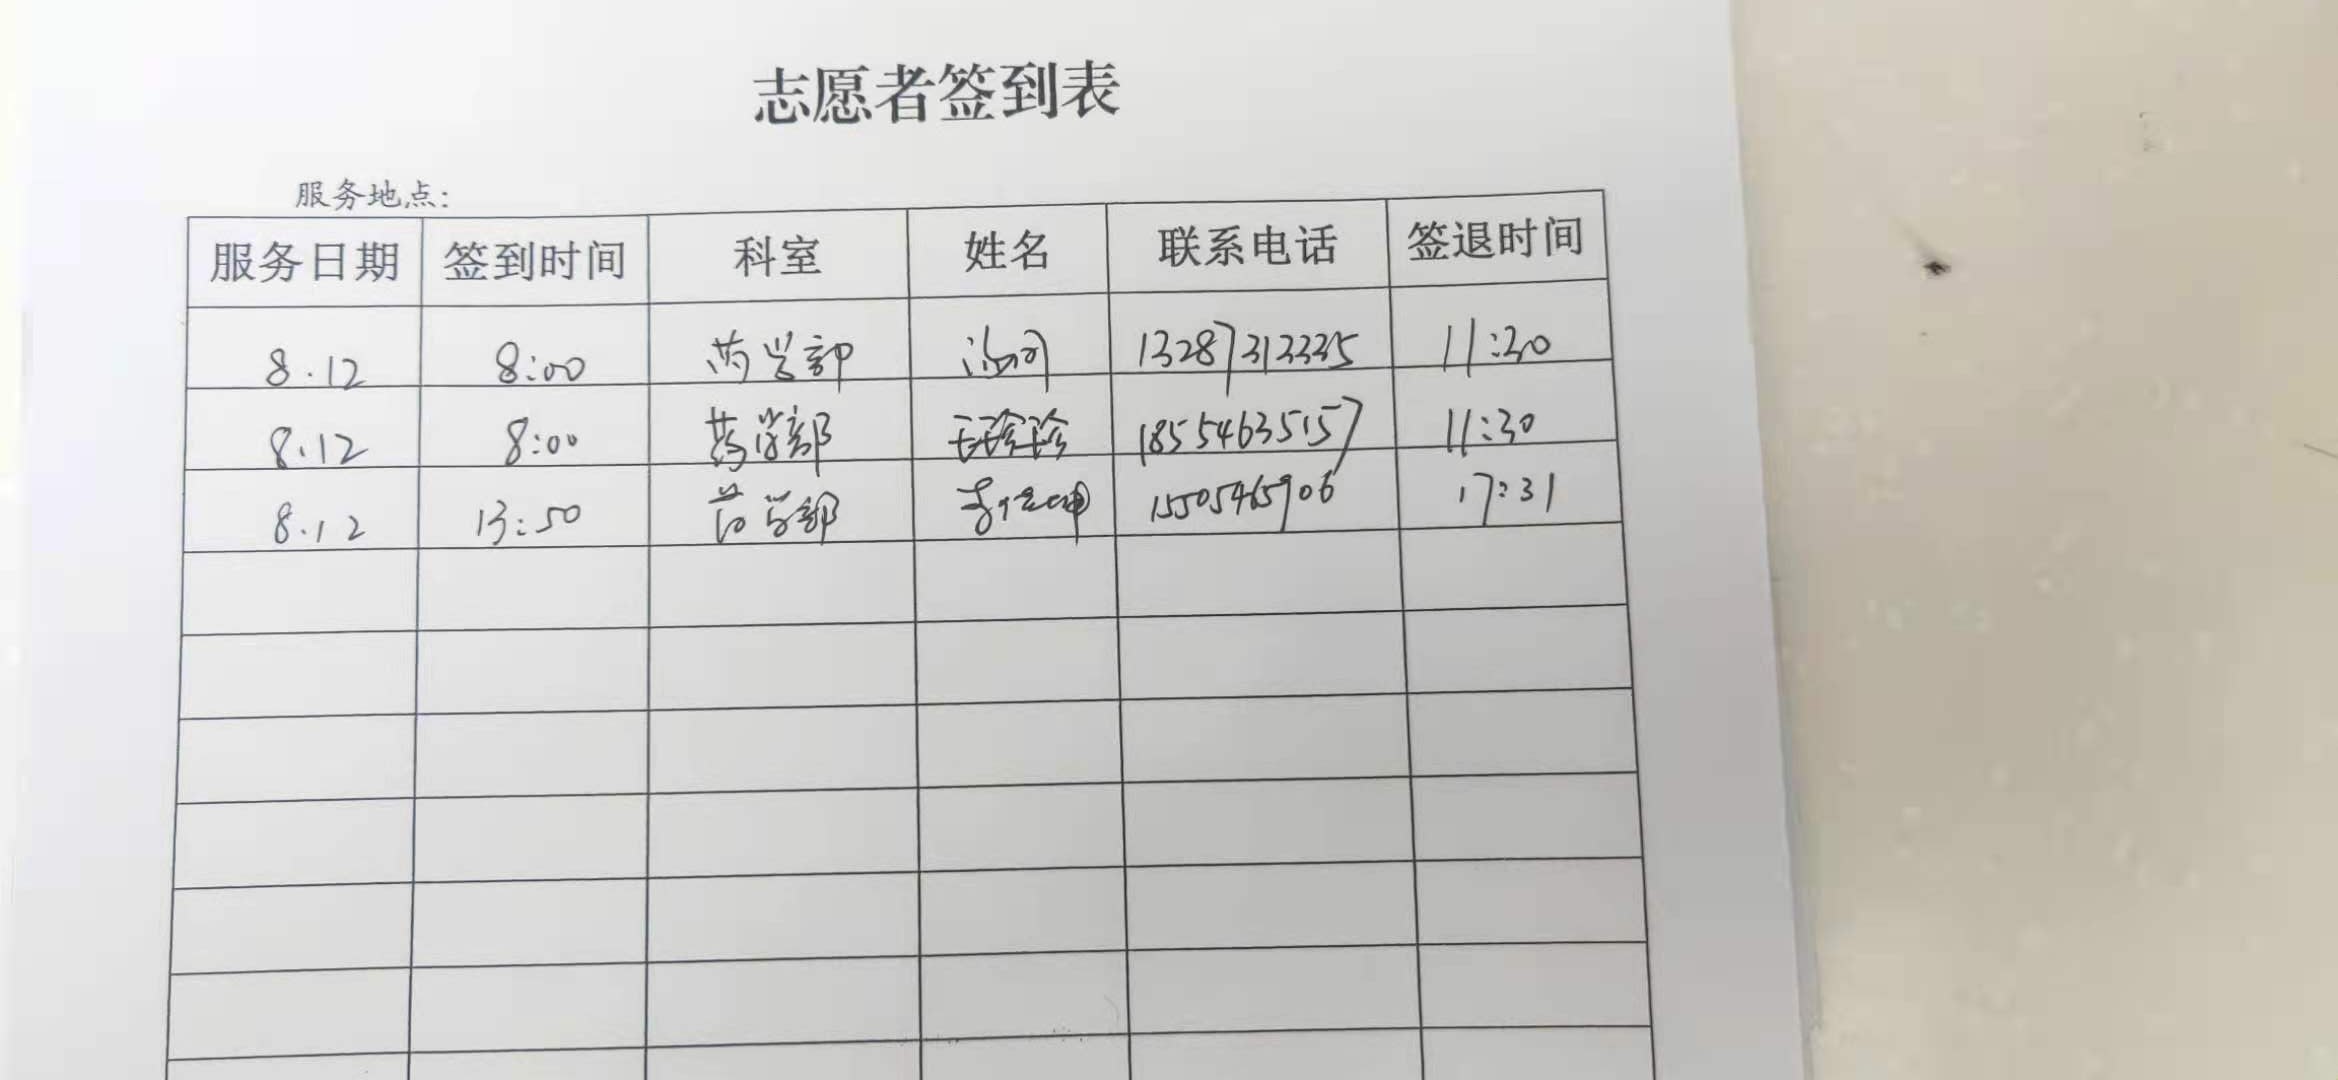 志愿者签到表
服务地点:
服务日期 签到时间 科室 姓名 联系电话 签退时间
8.12 8:00 药学部 13287313335 11:30
8.12 8:00 药学部 18554635157 11:30
8.12 13:50 药学部 15505465906 17:31